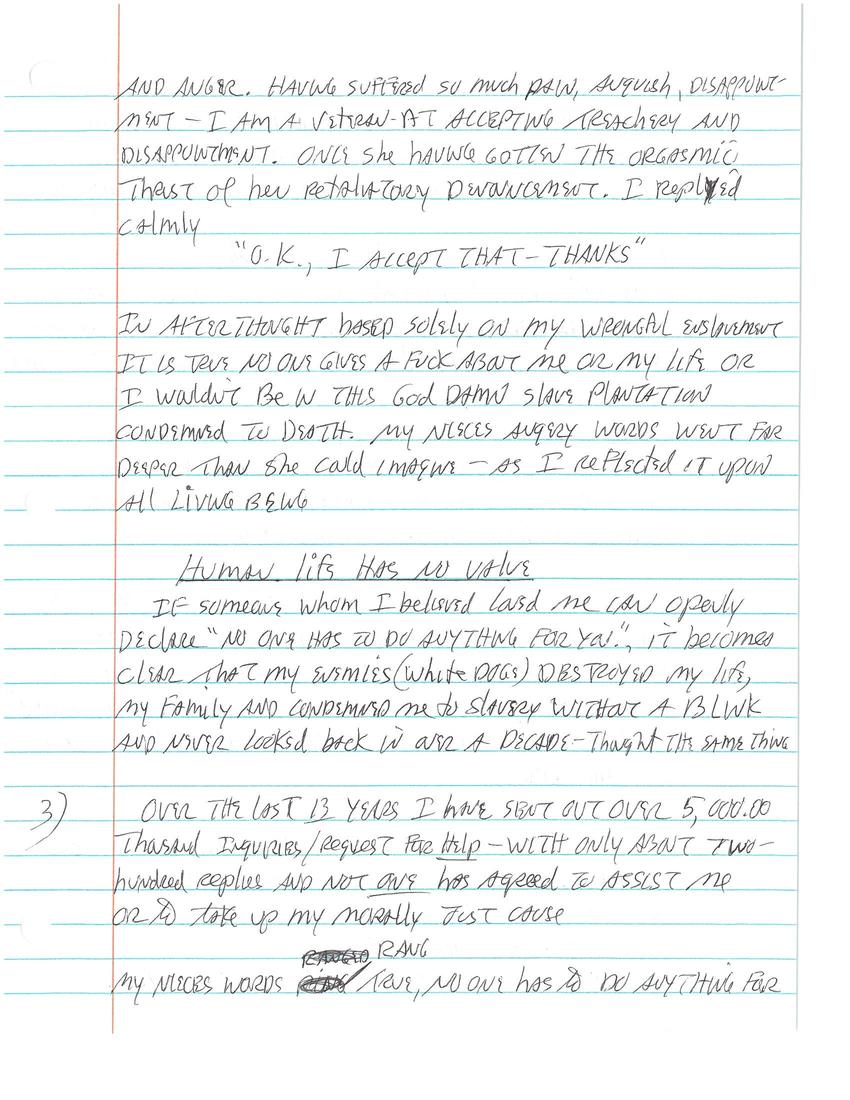 AND ANGER. HAVING SUFFERED SO much PAIN, ANGUISH, DISAPPOINT-
MENT – I AM A VETERAN AT ACCEPTING TREACHERY AND
DISAPPOINTMENT. ONCE She HAVING GOTTEN THE ORGASMIC
Thrust of her RETALIATORY I Replyed
calmly
"O.K., I ACCEPT THAT – THANKS"
IN AFTERTHOUGHT bASED SOLELY ON my WRONGFUL ENSLAVEMENT
IT IS TRUE NO ONE GIVES A FUCK ABOUT me OR my LIFE OR
I Wouldn't BE IN THIS God DAMN SLAVE PLANTATION
CONDEMNED TO DEATH. MY NIECES ANGERY WORDS WENT FAR
DEEPER THAN She could IMAGINE – AS I reflected IT UPON
All LIVING BEING
HUMAN life HAS NO VALUE
IF someone whom I believed loved me CAN openly
DEClare "NO ONE HAS TO DO ANYTHING FOR YOU.", it becomes
CLEAR THAT my ENEMIES (White DOGS) DESTROYED my life,
my FAMILY AND CONDEMNED me to SLAVERY WITHOUT A BLINK
AND NEVER LOOKED back in over A DECADE – Thought THE SAME THING
3) OVER THE LAST 13 YEARS I have SENT OUT OVER 5,000.00
Thousand INQUIRIES/REQUEST FOR Help – WITH ONLY ABOUT TWO-
hundred replies AND NOT ONE has Agreed TO ASSIST me
OR to take up my morally JUST CAUSE
RANG
MY NIECES WORDS TRUE, NO ONE has to DO ANYTHING FOR